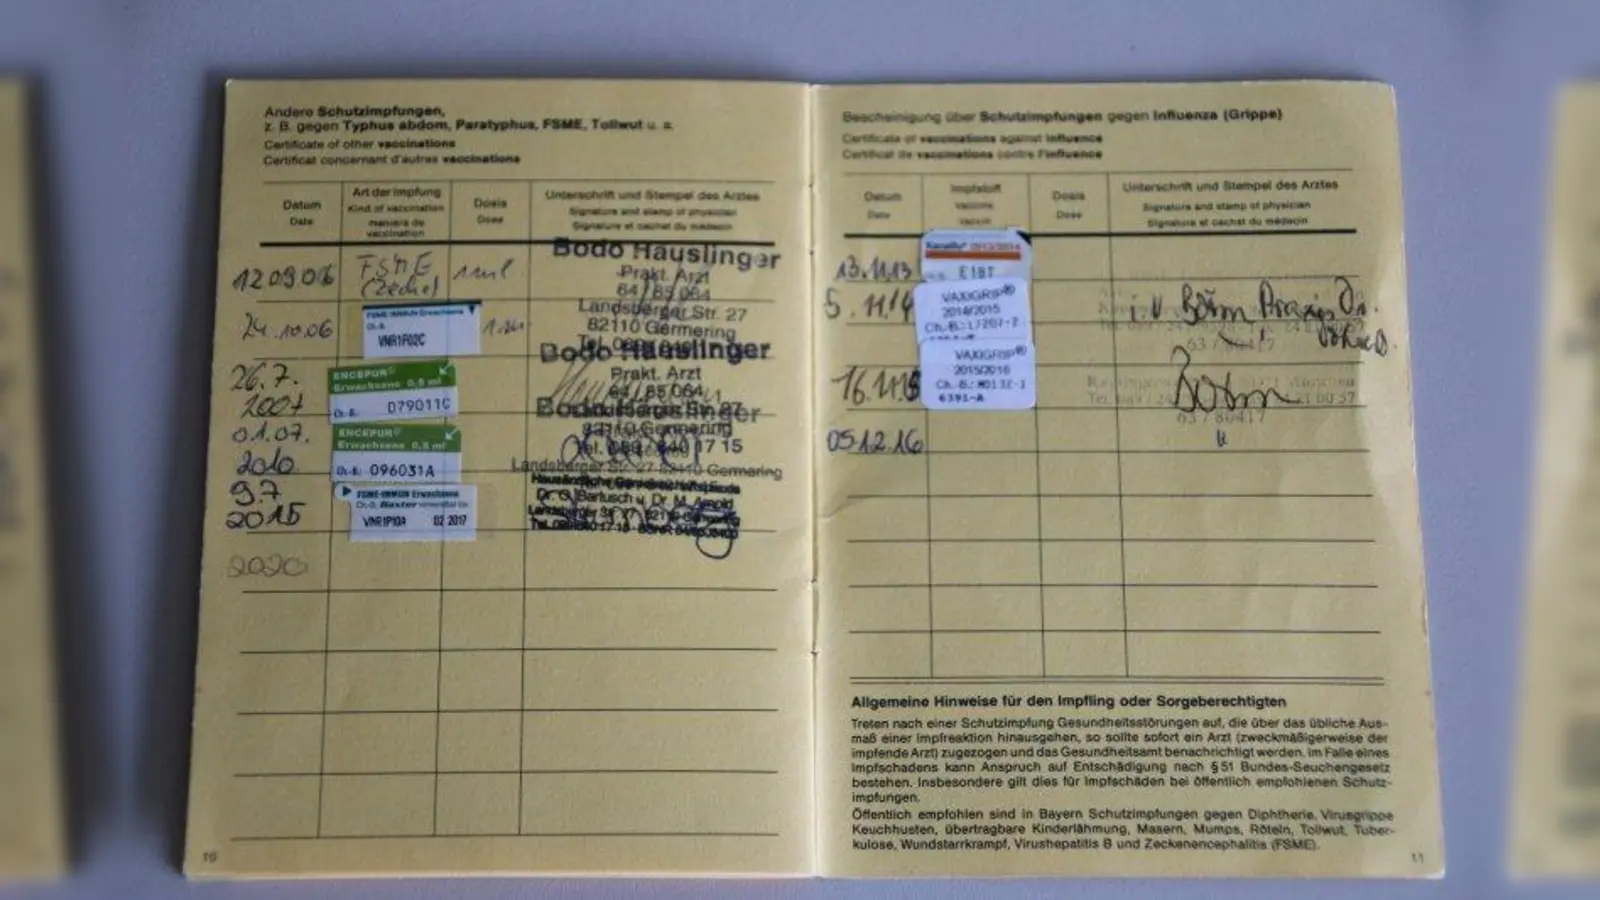 Andere Schutzimpfungen,
z. B. gegen Typhus abdom, Paratyphus, FSME, Tollwut u. a.
Certificate of other vaccinations
Certificat concernant d'autres vaccinations
Datum
Date
Art der Impfung
Kind of vaccination
manière de
vaccination
Dosis
Dose
Unterschrift und Stempel des Arztes
Signature and stamp of physician
Signature et cachet du médecin
12.09.06 FSME
(Zecke)
Bodo Hauslinger
Prakt. Arzt
64/85 064
Landsberger Str. 27
82110 Germering
24.10.06
FSME-IMMUN Erwachsene
Ch.-B.
VNR1F02C
Bodo Hauslinger
Prakt. Arzt
64/85 064
26.7.
2007
ENCEPUR®
Erwachsene 0,5 ml
Ch.-B.: 079011C
Bodo Hauslinger
82110 Germering
01.07.
2010
ENCEPUR®
Erwachsene 0,5 ml
Ch.-B.: 096031A
Landsberger Str. 27 82110 Germering
9.7
2015
FSME-IMMUN Erwachsene
Baxter
VNR1P10A 02 2017
Dr. G. Bartusch u. Dr. M. Arnold
2020
10
Bescheinigung über Schutzimpfungen gegen Influenza (Grippe)
Certificate of vaccinations against influence
Certificat de vaccinations contre l'influence
Datum
Date
Impfstoff
Vaccine
Vaccin
Dosis
Dose
Unterschrift und Stempel des Arztes
Signature and stamp of physician
Signature et cachet du médecin
13.11.13
2013/2014
E18T
5.11.14
VAXIGRIP®
2014/2015
Ch.-B.: L7207-2
i.V. Böhm Praxis Dr.
63 / 80417
16.11.15
VAXIGRIP®
2015/2016
Ch.-B.: M0132-1
6391-A
Böhm
63 / 80417
05.12.16
Allgemeine Hinweise für den Impfling oder Sorgeberechtigten
Treten nach einer Schutzimpfung Gesundheitsstörungen auf, die über das übliche Aus-
maß einer Impfreaktion hinausgehen, so sollte sofort ein Arzt (zweckmäßigerweise der
impfende Arzt) zugezogen und das Gesundheitsamt benachrichtigt werden. Im Falle eines
Impfschadens kann Anspruch auf Entschädigung nach § 51 Bundes-Seuchengesetz
bestehen. Insbesondere gilt dies für Impfschäden bei öffentlich empfohlenen Schutz-
impfungen.
Öffentlich empfohlen sind in Bayern Schutzimpfungen gegen Diphtherie, Virusgrippe
Keuchhusten, übertragbare Kinderlähmung, Masern, Mumps, Röteln, Tollwut, Tuber-
kulose, Wundstarrkrampf, Virushepatitis B und Zeckenencephalitis (FSME).
11